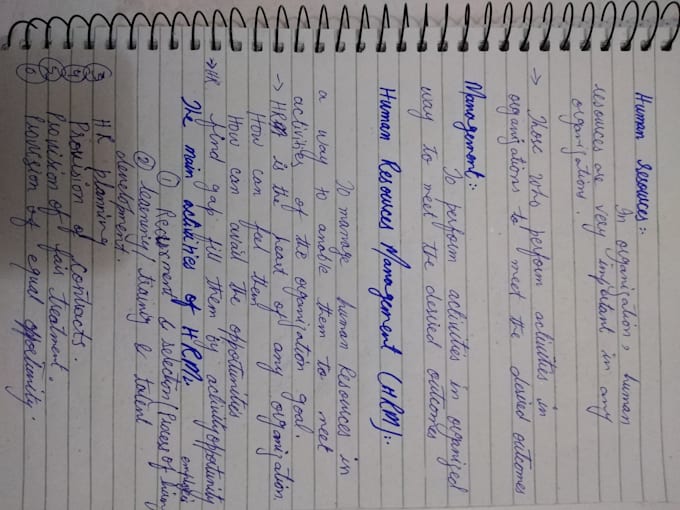 Human Resources:.
In organization, human
resources are very important in any
organizations.
→ Those who perform activities in
organizations to meet the desired outcomes
Management:.
To perform activities in organized
way to meet the desired outcomes
Human Resources Management (HRM):.
To manage human Resources in
a way to enable them to meet
activities of the organization goal.
→ HRM is the heart of any organization
How can feel them
How can avail the oppotunities
→ HR find gap fill them by activity/opportunity
The main activities of HRM.
① Recruitment & selection/Process of hiring
② learning/ &
talent
development.
③ HR planning
④ Provision of Contracts.
⑤ Provision of fair treatment.
⑥ Provision of equal oppotunity.